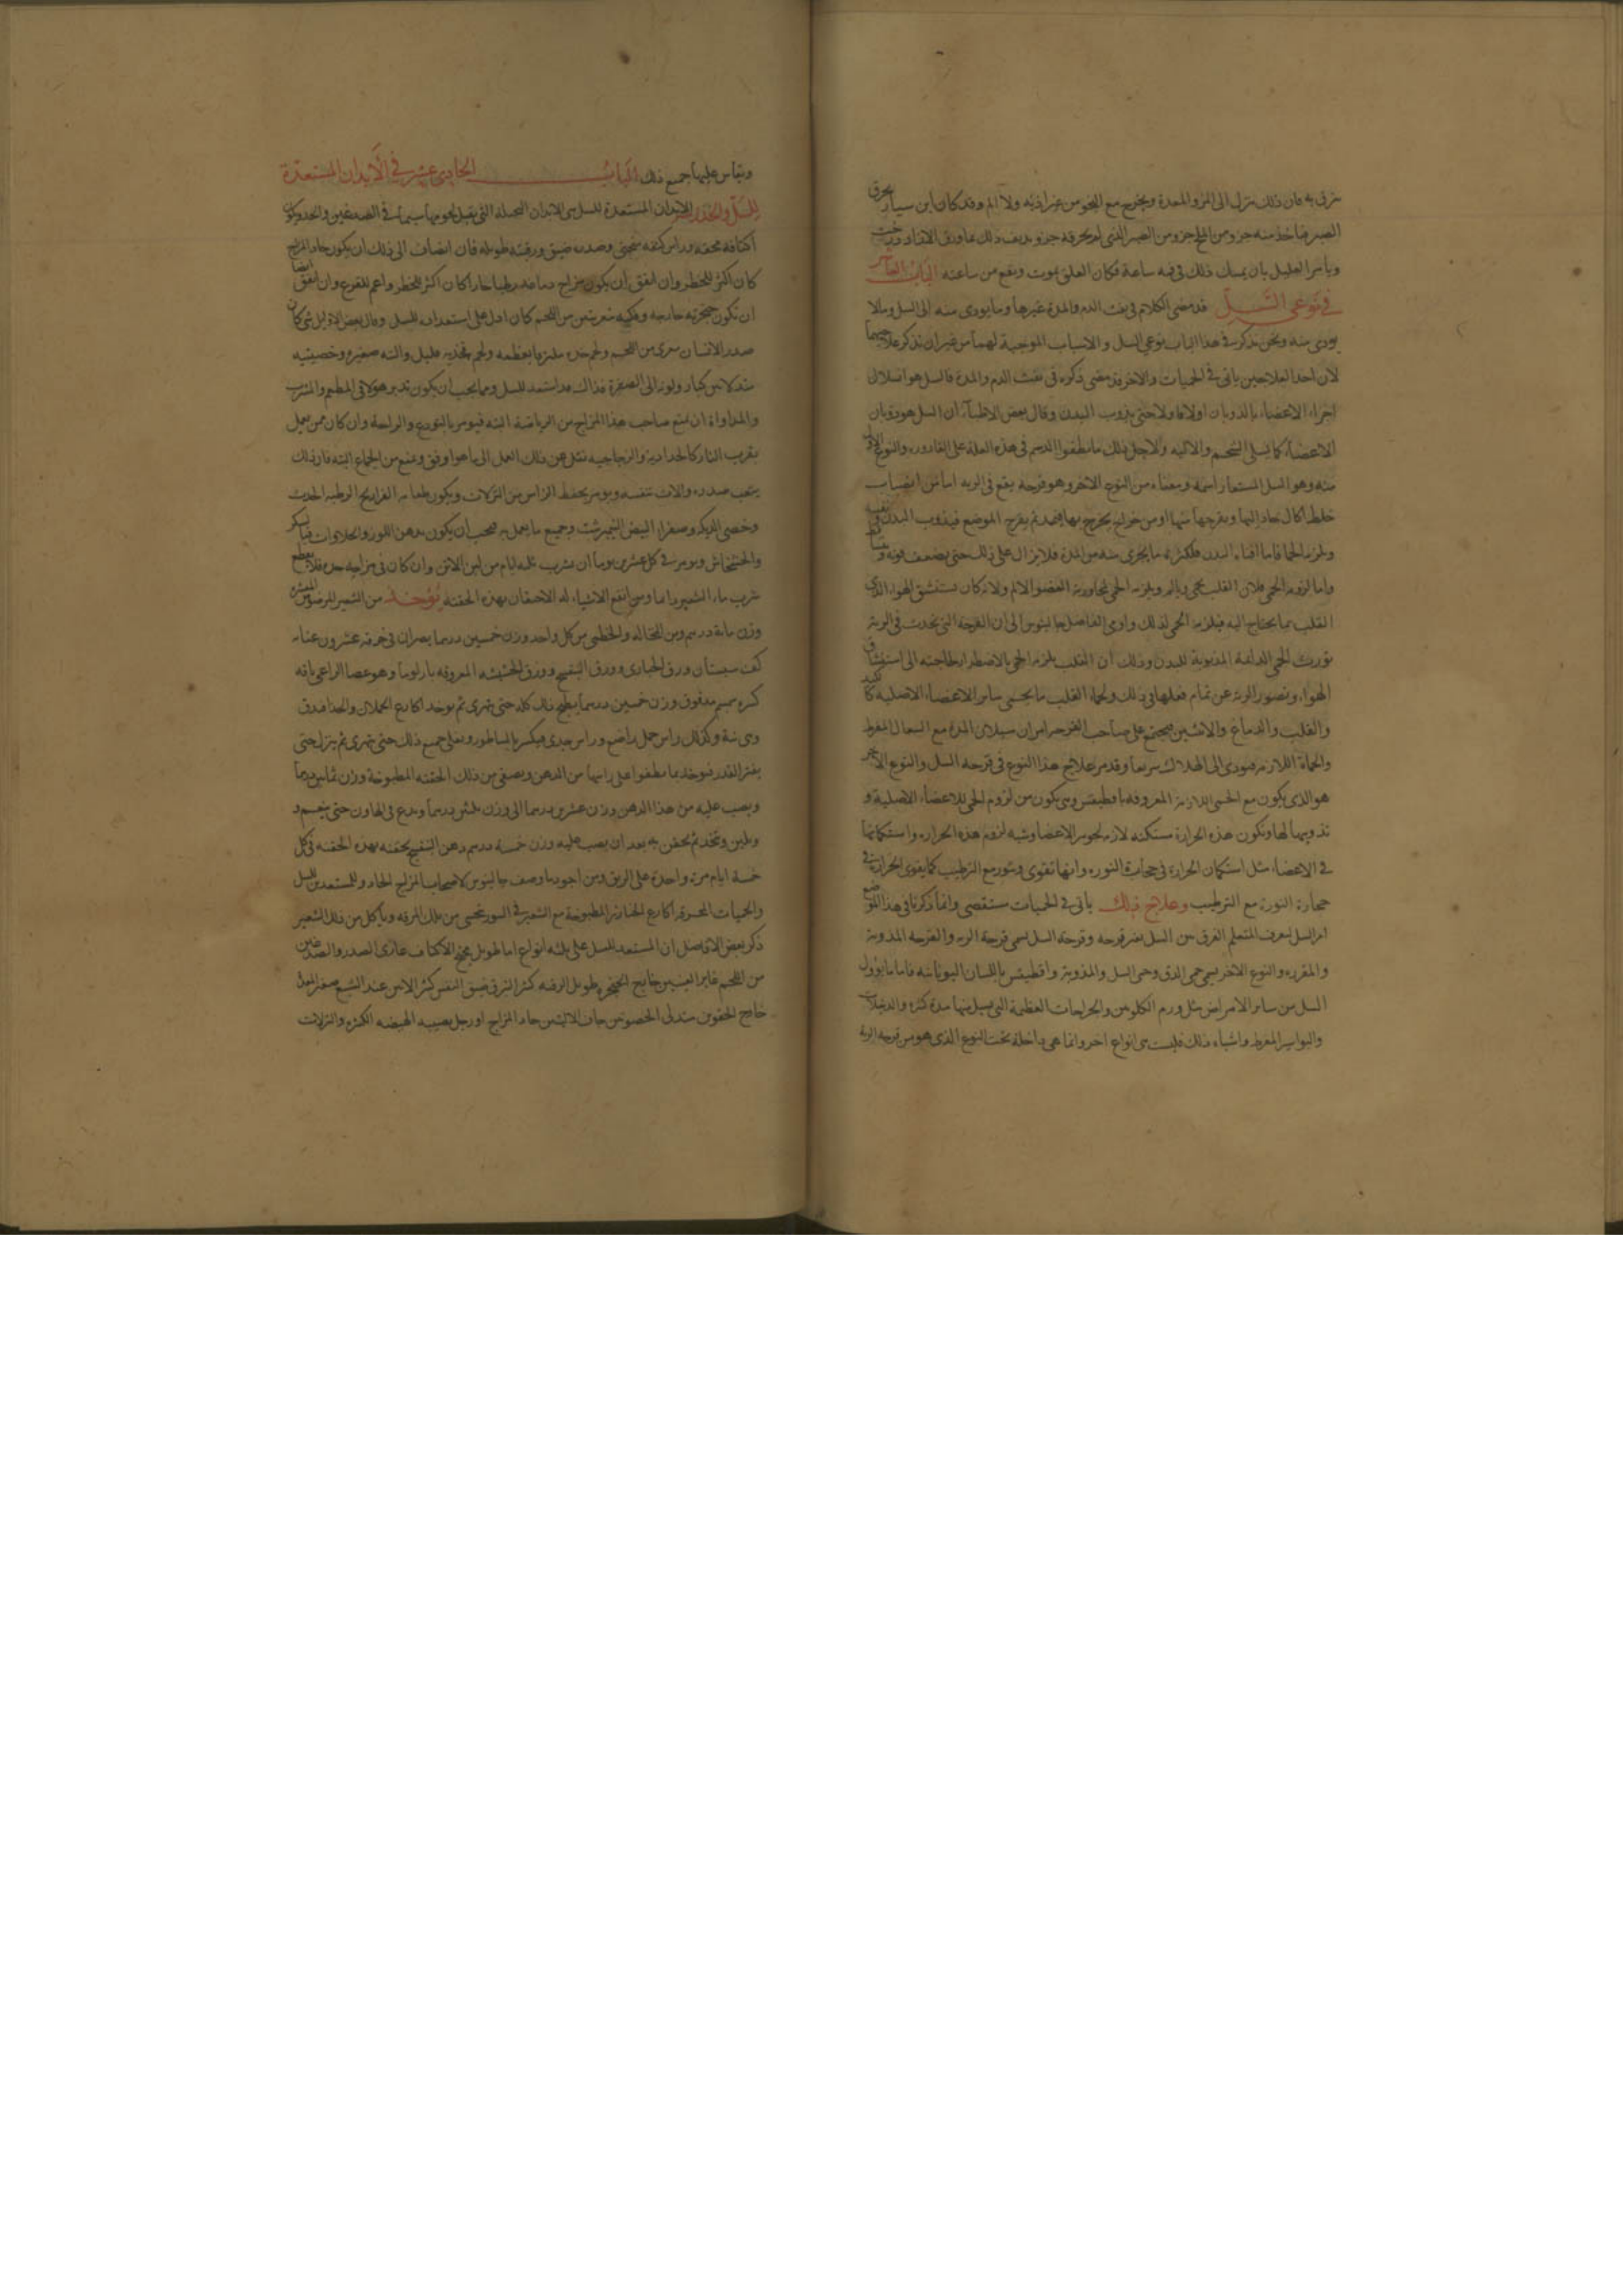 يرمى به فان ذلك ينزل الى المرى والمعدة ويخرج مع النجو من غير اذيه ولا الم وقد كان ابن سيار يحرق
الصبر فياخذ منه جزو ومن الملح جزو ومن الصبر الذي لم يحرقه جزو يديف ذلك بماء ورق
ويامر العليل بان يمسك ذلك في فيه ساعة فكان العلق يموت ويقع من ساعته الباب العاشر
في نوعي السل قد مضى الكلام في نفث الدم والمدة وغيرها وما يودى منه الى السل وما لا
يودى منه ونحن نذكر في هذا الباب نوعي السل والاسباب الموجبة لهما من غير ان نذكر علاجهما
لان احد العلاجين ياتي في الحميات والاخر قد مضى ذكره في نفث الدم والمدة فالسل هو انسلال
اجزاء الاعضاء بالذوبان اولا فاولا حتى يذوب البدن وقال بعض الاطباء ان السل هو ذوبان
الاعضاء كما يسلى الشحم والاليه ولاجل ذلك ما يطفوا الدسم في هذه العلة على القاروره والنوع الاول
منه وهو السل المستعار اسمه ومعناه من النوع الاخر وهو قرحه يقع في الريه اما من انصباب
خلط اكال حاد اليها ويقرحها منها او من خراج يخرج بها فيمد ثم يقرح الموضع فيذوب البدن
ويلزمه الحما فاما افناء البدن فلكثرة ما يجرى منه من المدة فلا يزال على ذلك حتى يضعف قوته
واما لزوم الحمى فلان القلب يحمى ويالم ويلزمه الحمى لمجاورته العضو الالم ولانه كان يستنشق الهواء الذي
القلب مما يحتاج اليه فيلزمه الحمى لذلك واومى الفاضل جالينوس الى ان القرحة التي تحدث في الرية
تورث الحمى الدائمة المذوبة للبدن وذلك ان القلب يلزمه الحمى بالاضطرار لحاجته الى استنشاق
الهواء وقصور الرية عن تمام فعلها في ذلك ولحماء القلب ما يحمى ساير الاعضاء الاصلية كالكبد
والقلب والدماغ والانثيين فيجتمع على صاحب القرحة امران سيلان المدة مع السعال المفرط
والحماة اللازمه فيودى الى الهلاك سريعا وقد مر علاج هذا النوع في قرحه السل والنوع الاخر
هو الذي يكون مع الحمى اللازمة المعروفه باقطيقس وهي يكون من لزوم الحمى للاعضاء الاصلية و
تذويبها لها وتكون هذه الحرارة مستكنه لازمه لجوهر الاعضا وشبه لزوم هذه الحراره واستكانتها
في الاعضاء مثل استكنان الحرارة في حجارة النوره وانها تقوى وتثور مع الترطيب كما يقوى الحرارة في
حجارة النورة مع الترطيب وعلاج ذلك ياتي في الحميات مستقصى وانما ذكرنا في هذا الموضع
امر السل ليعرف المتعلم الفرق بين السل بغير قرحه وقرحة السل يسمى قرحة الريه والقرحه المذوبة
والمقرره والنوع الاخر يسمى حمى الدق وحمى السل والمذوبة واقطيقس باللسان اليونانيه فاما ما يؤول
السل من ساير الامراض مثل ورم الكلوتين والجراحات العظيمة التي يسيل منها مدة كثيره والدبيلات
والبواسير المفرط واشباه ذلك فليست هي انواع اخر وانما هي داخلة تحت النوع الذي هو من قرحه الرية
ويقاس عليها جميع ذلك الباب الحادي عشر في الابدان المستعدة
للسل والحذر الابدان المستعدة للسل هي الابدان النحيله التي يقبل لحومها سيما في الصدغين والخد ويكون
اكتافه مجنحه وراس كتفه شخيص وصدره ضيق ورقبته طويله فان انضاف الى ذلك ان يكون حاد المزاج
كان اكثر للخطر وان اتفق ان يكون مزاج دماغه رطبا حارا كان اكثر للخطر واعم للقرع وان اتفق ايضا
ان تكون حنجرته خارجه وفكيه متعريين من اللحم كان ادل على استعداده للسل وقال بعض الاوايل متى كان
صدر الانسان معرى من اللحم ولحم خده ملتزما بعظمه ولحم فخذيه قليل والته صغيره وخصيتيه
متدلاتين كبار ولونه الى الصفرة فذاك قد استعد للسل ومما يجب ان يكون تدبير هولا في المطعم والمشرب
والمداواة ان يمنع صاحب هذا المزاج من الرياضة البته فيومر بالتودع والراحة وان كان ممن يعمل
بقرب النار كالحدادية والزجاجيه نقل عن ذلك العمل الى ما هو اوفق ويمنع من الجماع البته فان ذلك
يتعب صدره والات تنفسه ويومر بحفظ الراس من النزلات ويكون طعامه الفراريج الرطبه الحديث
وخصى الديكه وصفرة البيض النيمرشت وجميع ما يعمل به يجب ان يكون بدهن اللوز والحلاوات فبالسكر
والخشخاش ويومر في كل عشرين يوما ان يشرب ثلثه ايام من لبن الاتن وان كان في مزاجه حده فلا يقطع
شرب ماء الشعير دايما ومن انفع الاشياء له الاحتقان بهذه الحقنه يؤخذ من الشعير المرضوض المقشر
وزن ماية درهم ومن النخاله والخطمى من كل واحد وزن خمسين درهما يصران في خرقه عشرون عنابه
كف سبستان ورق الخبازى وورق البنفسج وورق الحشيشه المعروفه بارلوسا وهو عصا الراعى باقه
كبيره سمسم مدقوق وزن خمسين درهما يطبخ ذلك كله حتى يتهرى ثم يوخذ اكارع الحملان والجدا فدق
وهي نية وكذلك راس حمل راضع وراس جدى فيكسر بالساطور ويغلى جميع ذلك حتى يتهرى ثم ينزل حتى
يفتر القدر فيوخذ ما يطفوا على راسها من الدهن ويصفى من ذلك الحقنه المطبوخة وزن ثمانين درهما
ويصب عليه من هذا الدهن وزن عشرين درهما الى وزن ثلثين درهما ويدع في الهاون حتى ينعم و
ويلين ويتخذ ثم يحقن به بعد ان يصب عليه وزن خمسة درهم دهن البنفسج يحقنه بهذه الحقنه في كل
خمسة ايام مرة واحدة على الريق ومن اجود ما وصف جالينوس لاصحاب المزاج الحاد وللمستعدين للسل
والحميات المحرقه اكارع الخنازير المطبوخة مع الشعير في التنور يتحسى من تلك المرقه وياكل من ذلك الشعير
ذكر بعض الافاضل ان المستعد للسل على ثلثه انواع اما طويل مجنح الاكتاف عارى الصدر والصدغين
من اللحم غاير العينين خارج الحنجره طويل الرقبه كثير العرق ضيق النفس كثير الانين عند الشبع صغير المعدة
خارج الحقوين متدلى الخصوتين جاف الاليتين حاد المزاج او رجل يصيبه الهيضه الكثيره والنزلات